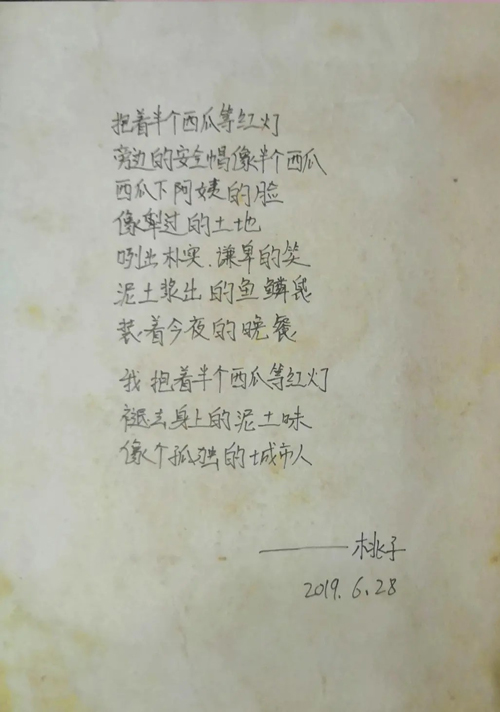 抱着半个西瓜等红灯
旁边的安全帽像半个西瓜
西瓜下阿姨的脸
像犁过的土地
咧出朴实、谦卑的笑
泥土浆出的鱼鳞袋
装着今夜的晚餐
我抱着半个西瓜等红灯
褪去身上的泥土味
像个孤独的城市人
——桃子
2019.6.28